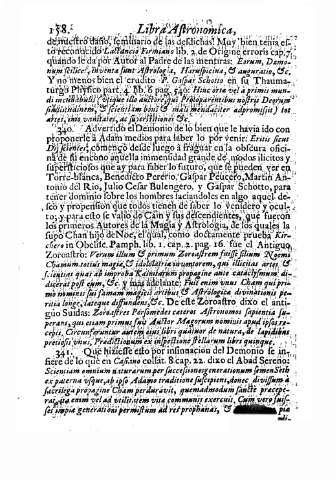 158. Libra Astronomica,
de nuestro daño, seminario de las desdichas! Muy bien tenia es-
to reconocido Lactancio Firmiano lib. 2. de Origine erroris cap. 7.
quando le da por Autor al Padre de las mentiras: Eorum, Demo-
num scilicet, inventa sunt Astrologia, Haruspicina, & auguratio, &c.
Y no menos bien el erudito P. Gaspar Schotto en su Thauma-
turgo Physico part. 4. lib. 6 pag. 540: Hinc arte vel à primis mun-
di incunabulis usque illo auctore, qui Protoparentibus nostris Deorum
similitudinem, & scientiam boni & mali mendaciter adpromissit) tot
artes, imò vanitates, ac superstitiones &c.
340. Advertido el Demonio de lo bien que le havia ido con
proponerle à Adam medios para saber lo por venir: Eritis sicut
Dij scientes, començò desde luego à fraguar en la obscura ofici-
na de su encono aquella inmensidad grande de modos ilicitos y
supersticiosos que ay para saber lo futuro, que se pueden ver en
Torre-blanca, Benedicto Pererio, Gaspar Peucero, Martin An-
tonio del Rio, Julio Cesar Bulengero, y Gaspar Schotto, para
tener dominio sobre los hombres saciandoles en algo aquel de-
seo y propension que todos tienen de saber lo venidero y ocul-
to; y para esto se valiò de Cain y sus descendientes, que fueron
los primeros Autores de la Magia y Astrologia, de los quales la
supo Chan hijo de Noe, el qual, como doctamente prueba Kir-
chero in Obelisc. Pamph. lib. 1. cap. 2. pag. 16. fue el Antiguo
Zoroastro: Verum illum & primum Zoroastrem fuisse illum Noëmi
Chamum totius magiæ, & idololatriæ inventorem, qui illicitas artes &
scientias quas ab improba Kainitarum propagine ante cataclysmum di-
dicerat post eum, &c. y mas adelante: Fuit enim unus Cham qui pri-
mo nominis sui famam magicis artibus & Astrologica divinationis pe-
ritia longe, lateque diffundens, &c. De este Zoroastro dixo el anti-
guo Suidas: Zoroastres Persomedes cæteros Astronomos sapientia su-
perans, qui etiam primus fuit Auctor Magorum nominis apud ipsos re-
cepti. Circunferuntur autem ejus libri quatuor de natura, de lapidibus
preciosis unus, Prædictionum ex inspectione stellarum libri quinque.
341. Que hiziesse esto por instinacion del Demonio se in-
fiere de lo que en Casiano collat. 8 cap. 22. dixo el Abad Sereno:
Scientiam omnium naturarum per successiones generationum semen Seth
ex paterna usque, ab ipso Adamo traditione suscipiens, donec divissum à
sacrilega propagine Cham perduravit, quemadmodum sanctè precepe-
rat, ita etiam vel ad utilitatem vitæ communis exercuit. Cum vero suis-
set impia generationi permistum ad res prophanas, &